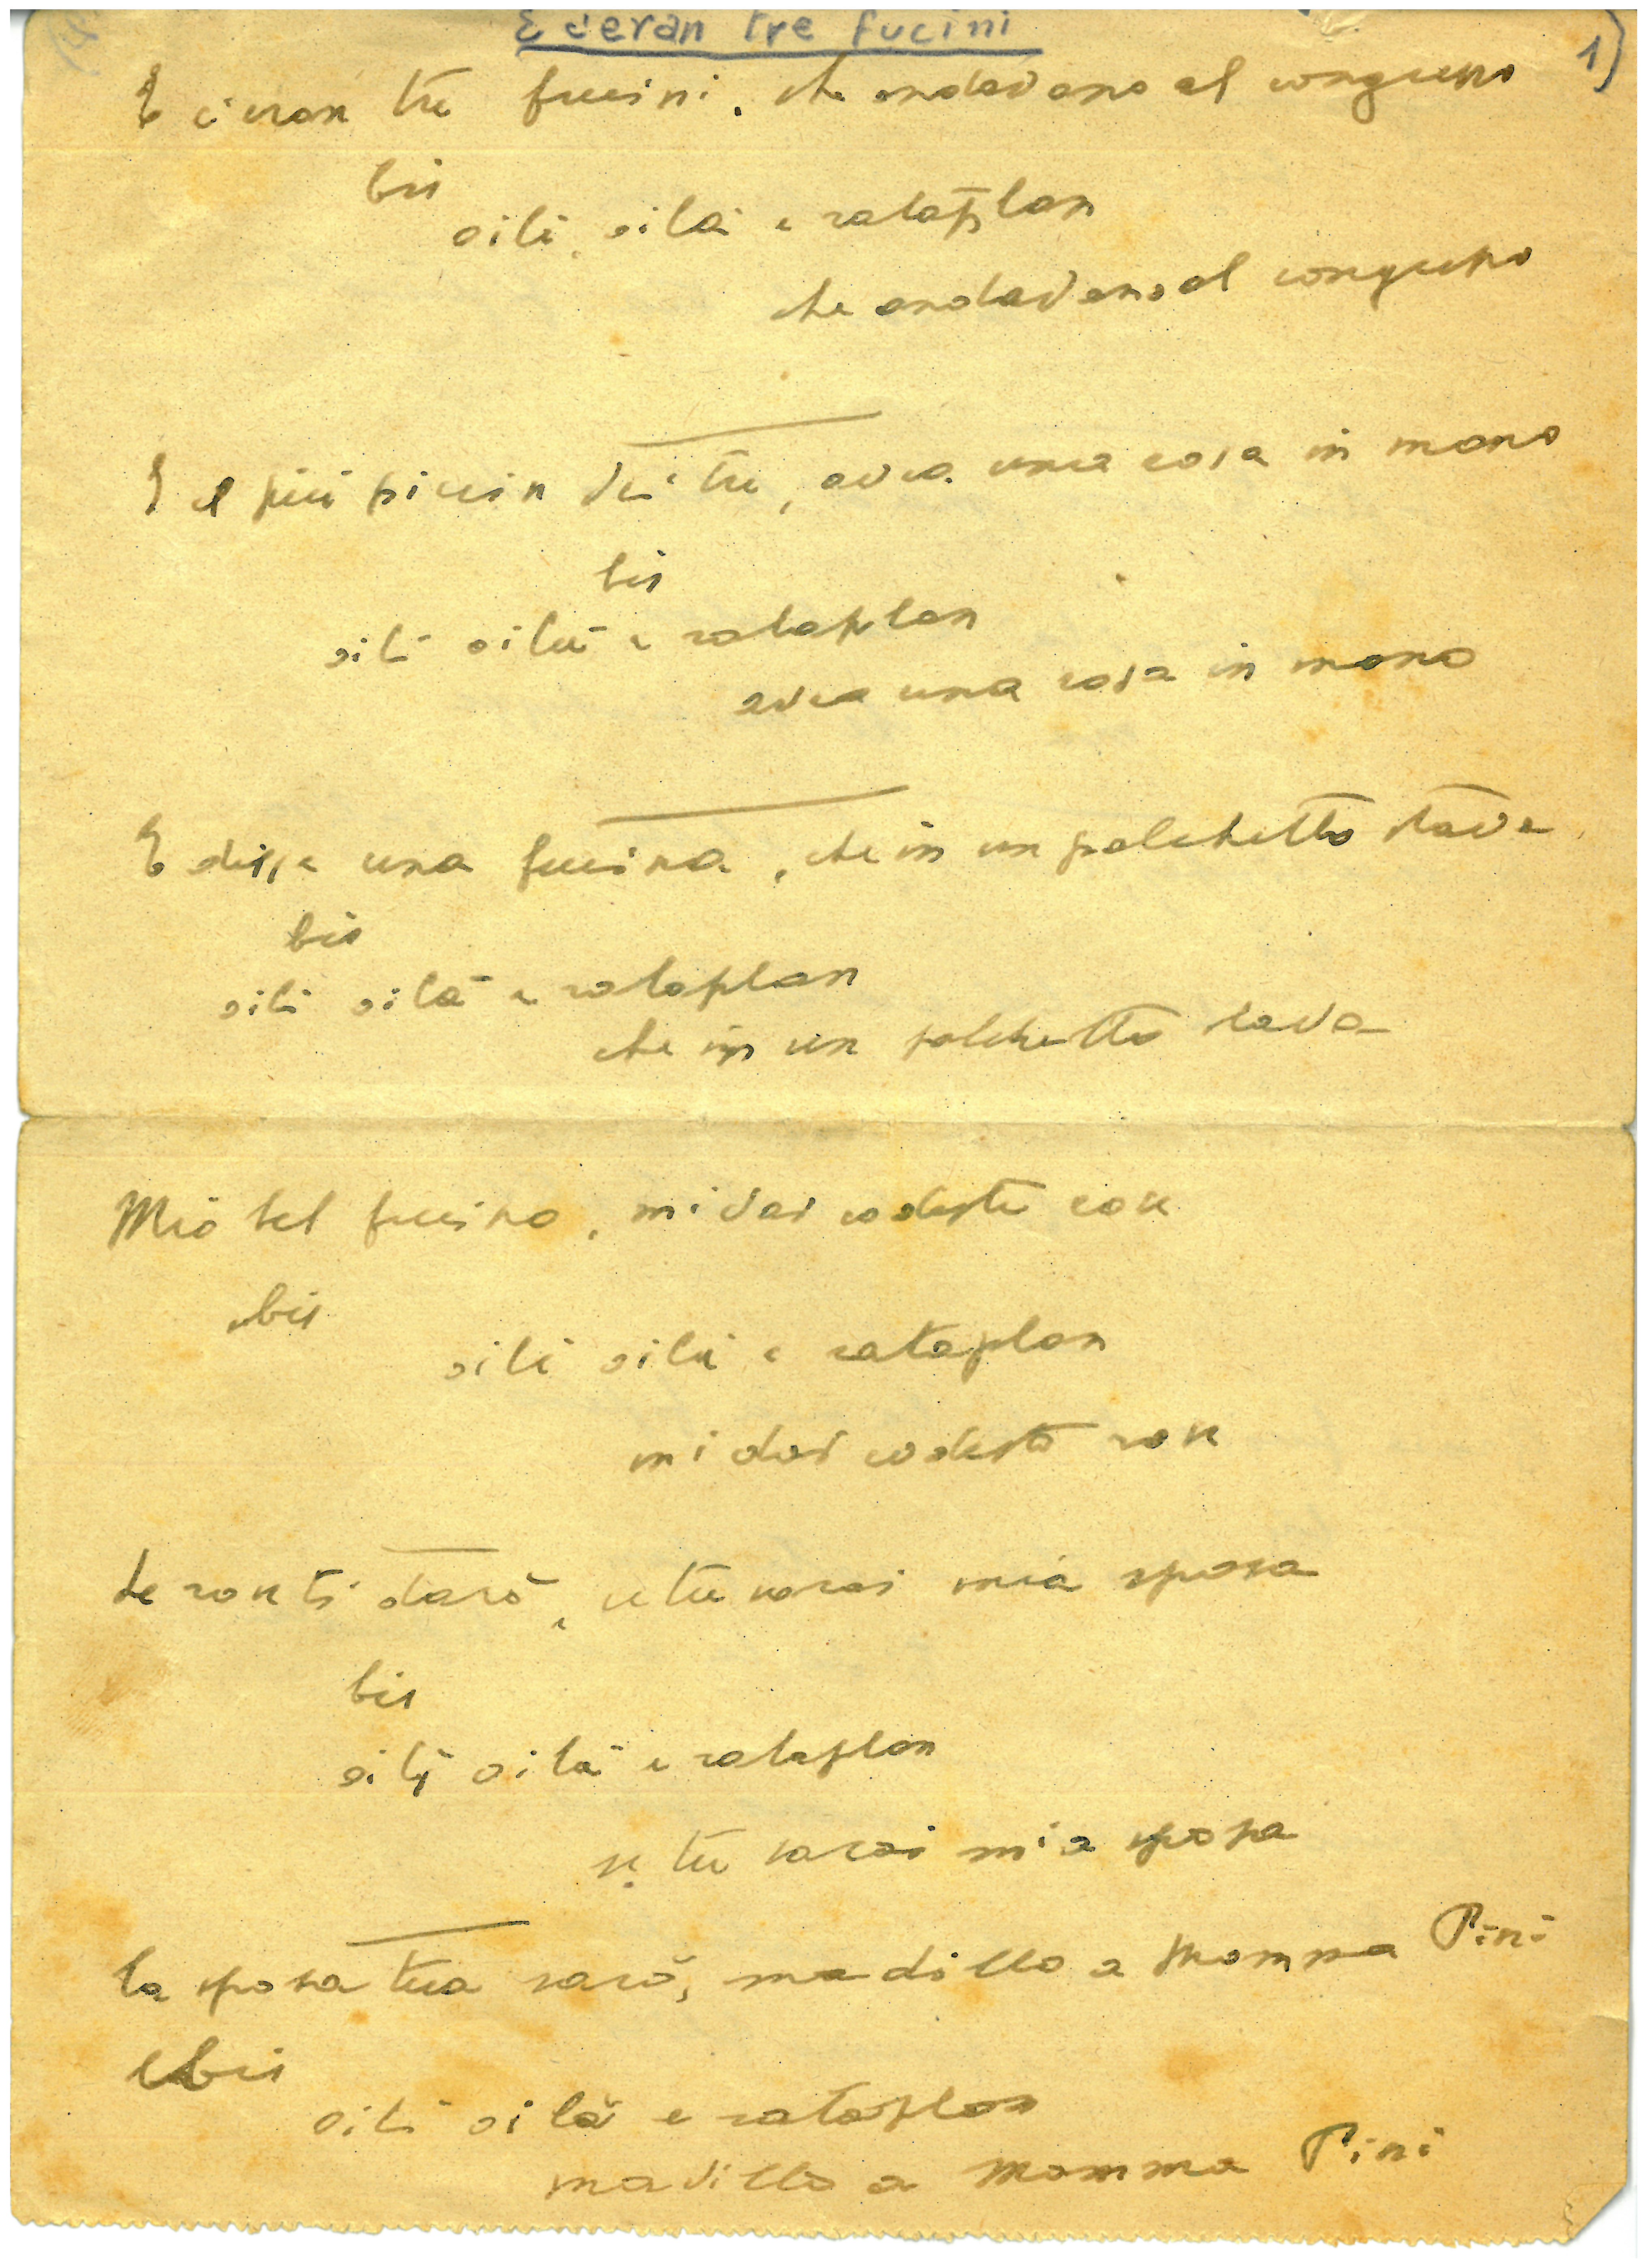 E c'eran tre fucini
1)
E c'eran tre fucini, che andavano al congresso
bis
oilì, oilà e rataplan
che andavano al congresso
E il più piccin dei tre, avea una rosa in mano
bis
oilì oilà e rataplan
avea una rosa in mano
E disse una fucina, che in un palchetto stava
bis
oilì oilà e rataplan
che in un palchetto stava
Mio bel fucino, mi dai codeste rose
bis
oilì oilà e rataplan
mi dai codeste rose
Le rose ti darò, se tu sarai mia sposa
bis
oilì oilà e rataplan
se tu sarai mia sposa
La sposa tua sarò, ma dillo a Mamma Pini
bis
oilì oilà e rataplan
ma dillo a Mamma Pini